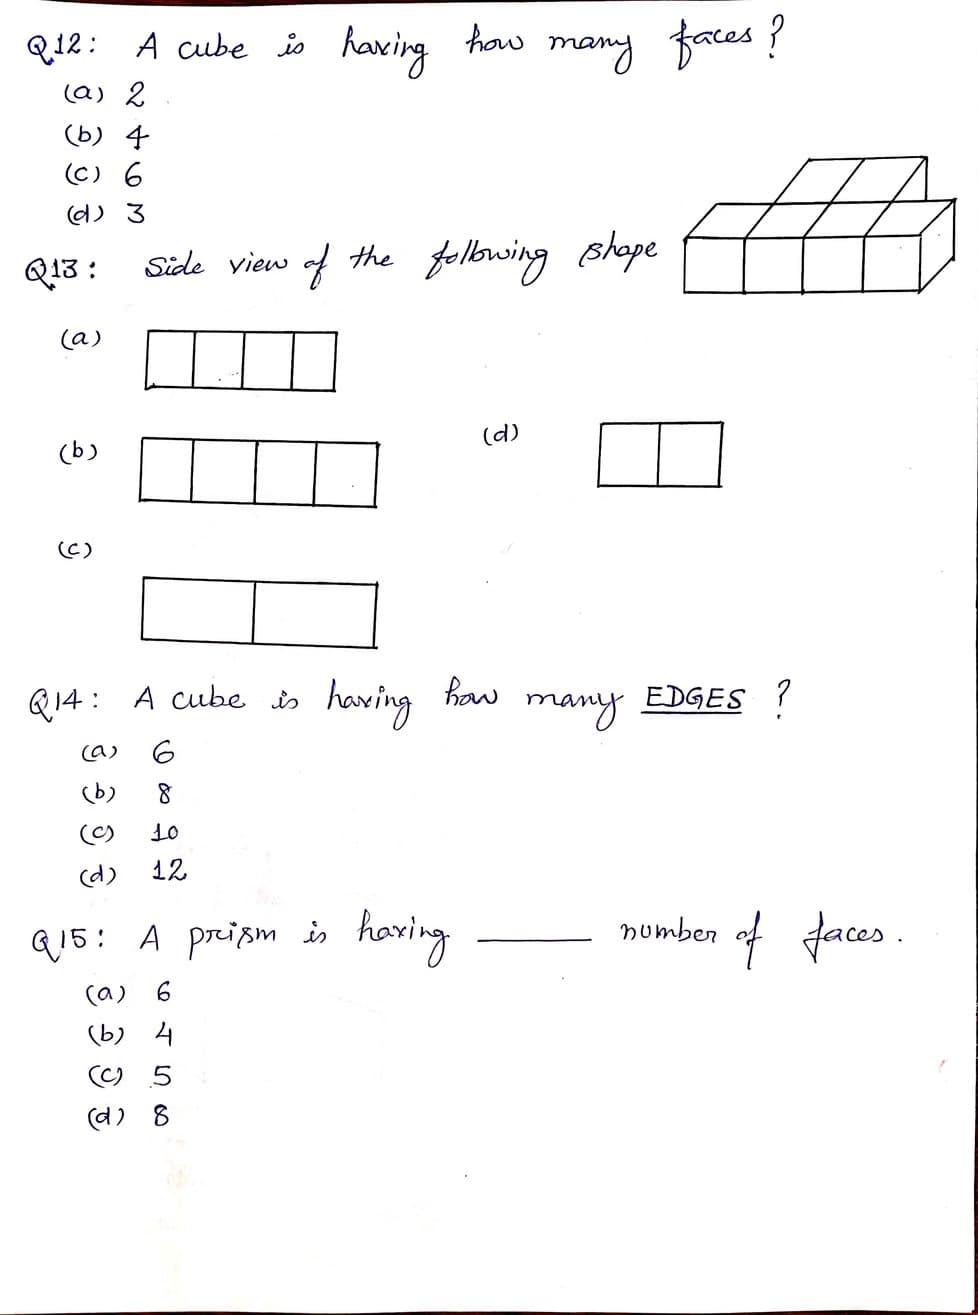 Q12: A cube is having how many faces?
(a) 2
(b) 4
(c) 6
(d) 3
Q13: Side view of the following shape
(a)
(b)
(d)
(c)
Q14: A cube is having how many EDGES ?
(a) 6
(b) 8
(c) 10
(d) 12
Q15: A preism is having ______ number of faces.
(a) 6
(b) 4
(c) 5
(d) 8